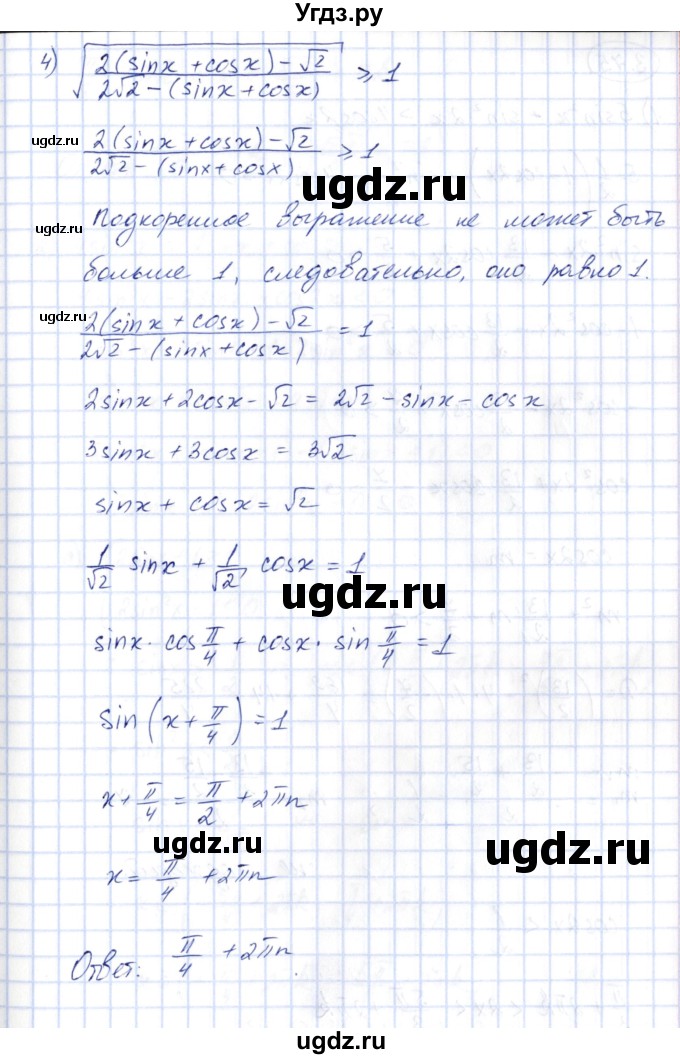 Угдз.ру
4) √(2(sinx + cosx) - √2)/(2√2 - (sinx + cosx)) ⩾ 1
ugdz.ru
(2(sinx + cosx) - √2)/(2√2 - (sinx + cosx)) ⩾ 1
ugdz.ru
ugdz.ru
Подкоренное выражение не может быть
больше 1, следовательно, оно равно 1.
ugdz.ru
(2(sinx + cosx) - √2)/(2√2 - (sinx + cosx)) = 1
2sinx + 2cosx - √2 = 2√2 - sinx - cosx
3sinx + 3cosx = 3√2
sinx + cosx = √2
1/√2 sinx + 1/√2 cosx = 1
ugdz.ru
sinx · cos π/4 + cosx · sin π/4 = 1
sin(x + π/4) = 1
x + π/4 = π/2 + 2πn
ugdz.ru
ugdz.ru
x = π/4 + 2πn
Ответ: π/4 + 2πn.
ugdz.ru